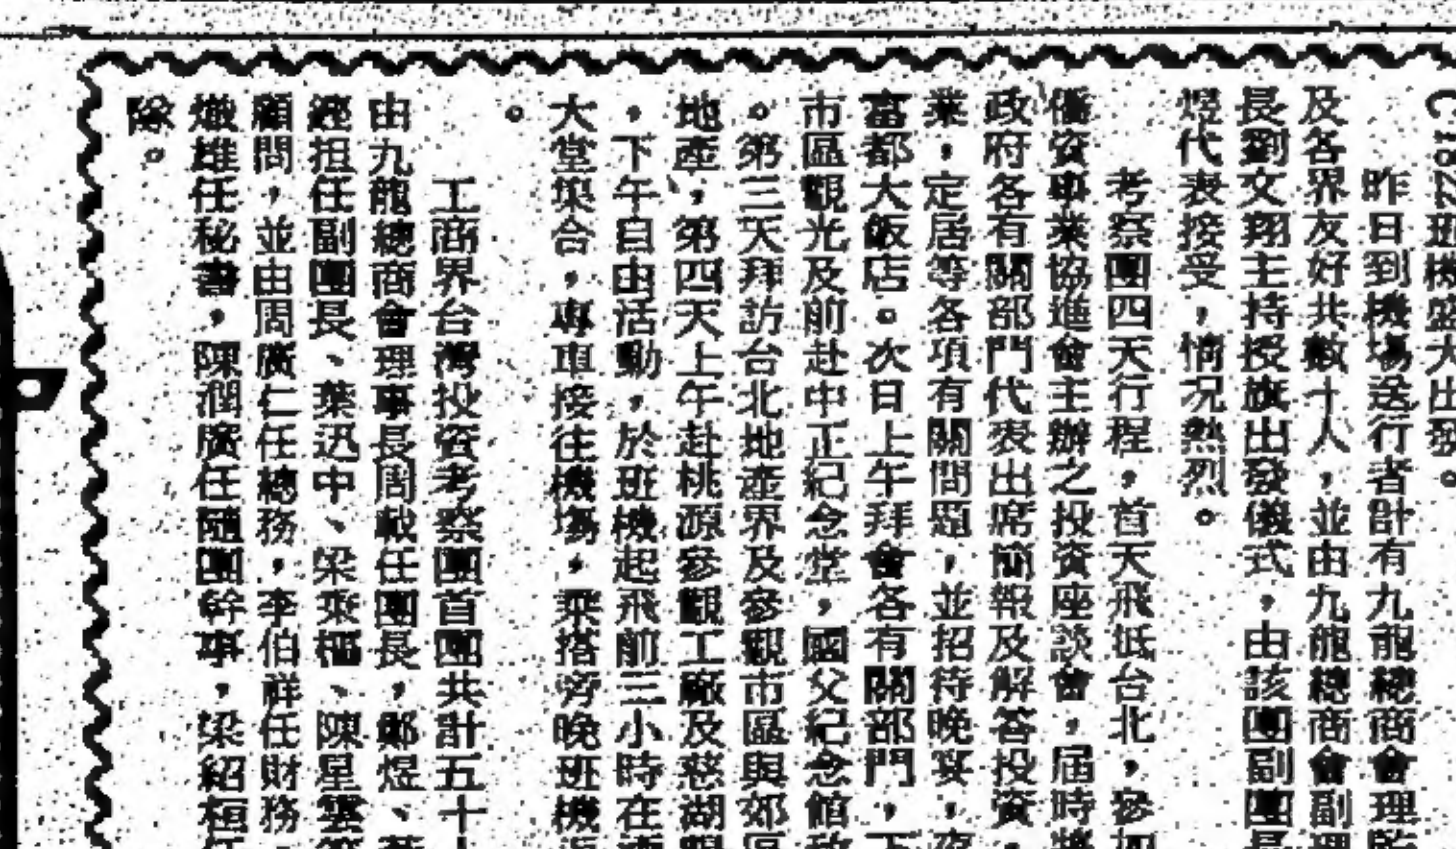 班機盛大出發。
昨日到機場送行者計有九龍總商會理監
及各界友好共數十人,並由九龍總商會副理
長劉文翔主持授旗出發儀式,由該團副團長
煜代表接受,情況熱烈。
考察團四天行程,首天飛抵台北,參加
僑資事業協進會主辦之投資座談會,屆時將
政府各有關部門代表出席簡報及解答投資,
業,定居等各項有關問題,並招待晚宴,夜
富都大飯店。次日上午拜會各有關部門,下
市區觀光及前赴中正紀念堂,國父紀念館致
。第三天拜訪台北地產界及參觀市區與郊區
地產,第四天上午赴桃源參觀工廠及慈湖
,下午自由活動,於班機起飛前三小時在
大堂集合,專車接往機場,乘搭旁晚班機返
。
工商界台灣投資考察團首團共計五十
由九龍總商會理事長周戩任團長,鄭煜、
擔任副團長、葉迅中、梁秉樞、陳星雲等
顧問,並由周廣仁任總務,李伯祥任財務,
熾雄任秘書,陳潤廣任隨團幹事,梁紹桓任
除。